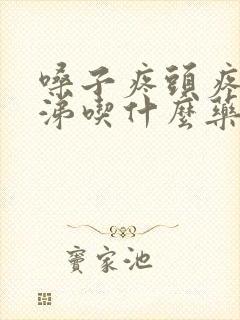 嗓子疼頭疼
涕喫什麼藥
竇家池